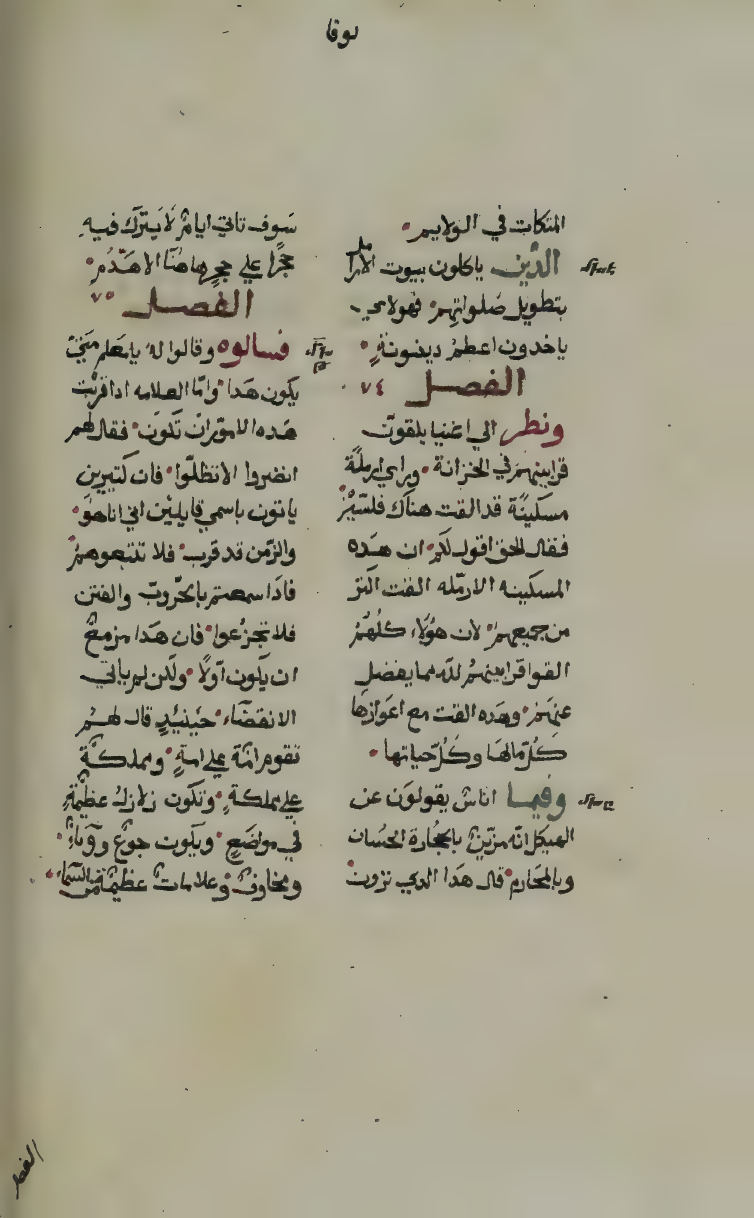 لوقا
المتكات في الولايم
الذين ياكلون بيوت الارامل
بتطويل صلواتهم فهولاي
ياخدون اعظم دينونةٍ
الفصل ٧٤
ونظر الي اغنيا يلقون
قرابينهم في الخزانة وراي ارملة
مسكينة قد القت هناك فلسين
فقال الحق اقول لكم ان هده
المسكينه الارمله القت اكتر
من جميعهم لان هولاء كلهم
القوا قرابينهم لله مما يفضل
عنهم وهده القت مع اعوازها
كل مالها وكل حياتها
وفيما اناس يقولون عن
الهيكل انه مزين بالحجارة الحسان
وبالمحارم قال هدا الدي ترون
سوف تاتي ايام لا يترك فيه
حجرا علي حجر هاهنا الا هدم
الفصل ٧٥
فسالوه وقالوا له يا معلم متي
يكون هدا وما العلامه ادا قربت
هده الامور ان تكون فقال لهم
انضروا لا تظلوا فان كتيرين
ياتون باسمي قايلين اني انا هو
والزمن قد قرب فلا تتبعوهم
فادا سمعتم بالحروب والفتن
فلا تجزعوا فان هدا مزمع
ان يكون اولا ولكن لم ياتي
الانقضاء حينيد قال لهم
تقوم امة علي امةٍ ومملكة
علي مملكةٍ وتكون زلازل عظيمة
في مواضع ويكون جوع ووباء
ومخاوف وعلامات عظيمة من السماء